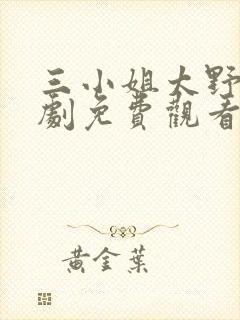 三小姐大野
劇免費觀看
黃金葉